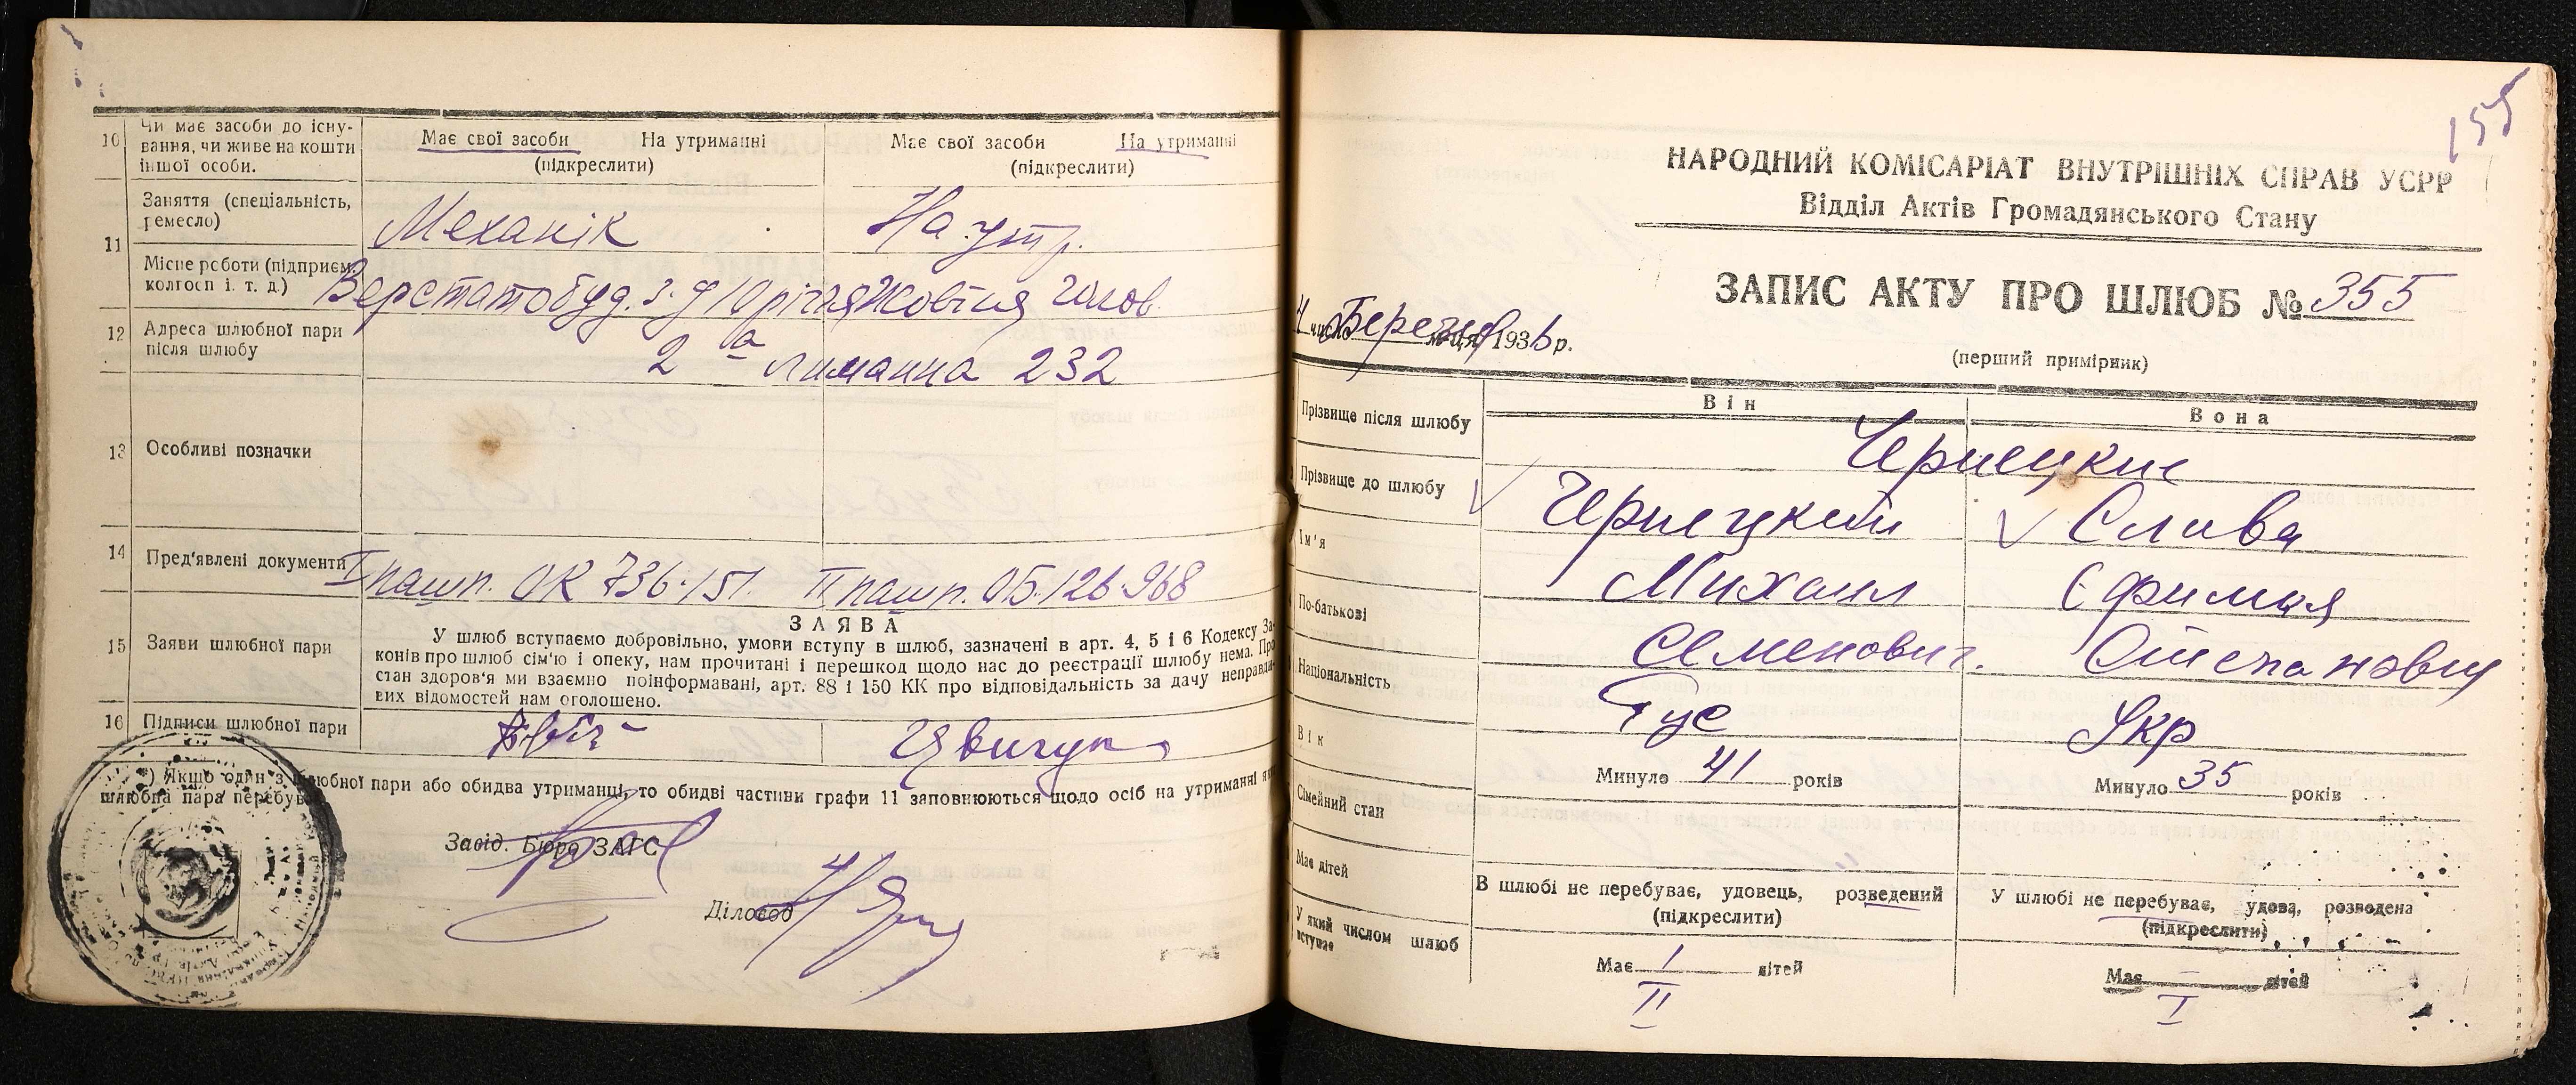 10 Чи має засоби до існу-
вання, чи живе на кошти
іншої особи.
Має свої засоби На утриманні
(підкреслити)
Має свої засоби На утриманні
(підкреслити)
11 Заняття (спеціальність,
ремесло)
Механік На утр.
Місце роботи (підприєм.
колгосп і. т. д.)
Верстатобуд. з-д 10 річчя Жовтня
12 Адреса шлюбної пари
після шлюбу
2а Лиманна 232
13 Особливі позначки
14 Пред'явлені документи
I пашп. ОК 736-151. II пашп. ОБ. 126-968
15 Заяви шлюбної пари
ЗАЯВА
У шлюб вступаємо добровільно, умови вступу в шлюб, зазначені в арт. 4, 5 і 6 Кодексу За-
конів про шлюб сім'ю і опеку, нам прочитані і перешкод щодо нас до реєстрації шлюбу нема. Про
стан здоров'я ми взаємно поінформавані, арт. 88 і 150 КК про відповідальність за дачу неправди-
вих відомостей нам оголошено.
16 Підписи шлюбної пари
*) Якщо один з шлюбної пари або обидва утриманці, то обидві частини графи 11 заповнюються щодо осіб на утриманні
шлюбна пара перебув
Завід. Бюро ЗАГС
Діловод
155
НАРОДНИЙ КОМІСАРІАТ ВНУТРІШНІХ СПРАВ УСРР
Відділ Актів Громадянського Стану
ЗАПИС АКТУ ПРО ШЛЮБ № 355
4 числа Березня м-ця 1936 р.
(перший примірник)
Він Вона
Прізвище після шлюбу
Чернецкие
Прізвище до шлюбу
Чернецкий Слива
Ім'я
Михаил Єфимия
По-батькові
Семенович. Степановну
Національність
Рус Укр
Вік
Минуло 41 років Минуло 35 років
Сімейний стан
В шлюбі не перебуває, удовець, розведений
(підкреслити)
У шлюбі не перебуває, удова, розведена
(підкреслити)
Має дітей
Має 1 дітей Має — дітей
У який числом шлюб
вступає
II I